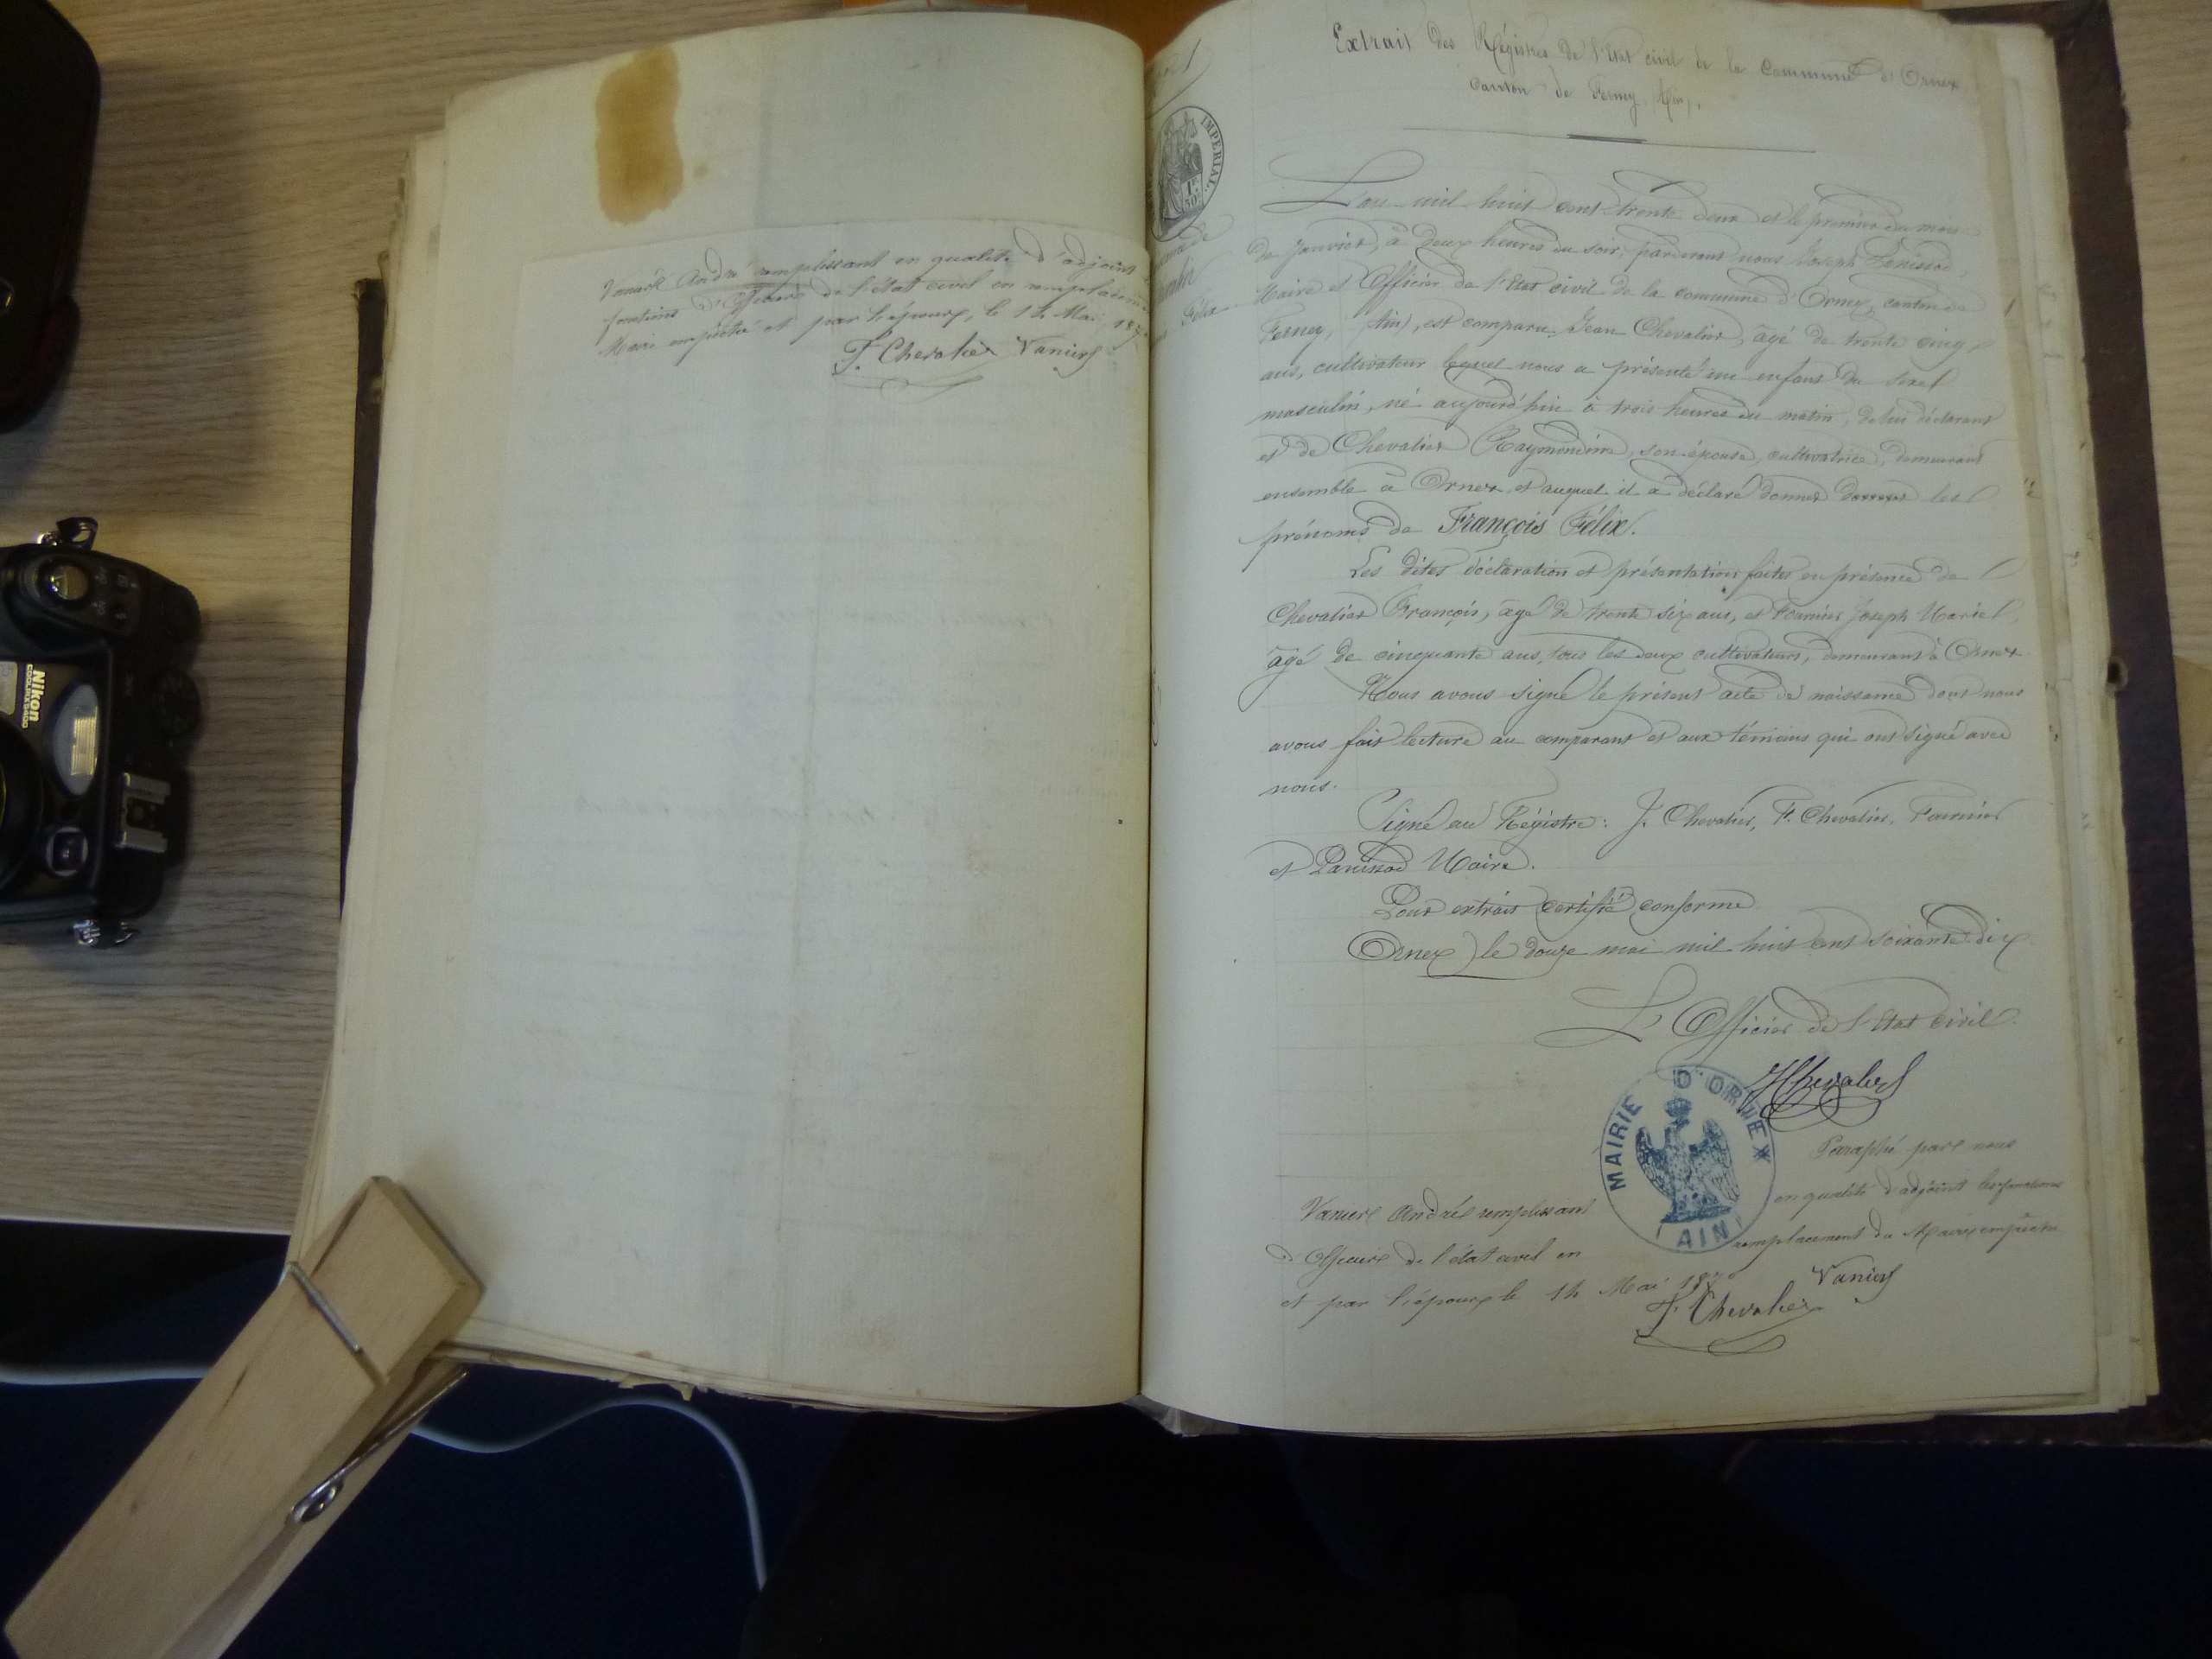 Vanier André remplissant en qualité d'adjoint
fonctions d'officier de l'état civil en remplacem
Maire empêché et par l'époux, le 12 Mai 187
F. Chevalier Vanier
IMPERIAL
1F
50c
Félix
Extrait des Régistres de l'Etat civil de la Commune d'Ornex
Canton de Ferney, (Ain).
L'an mil huit cent trente deux et le premier du mois
de Janvier, à deux heures du soir, pardevant nous Joseph Panissod,
Maire et Officier de l'Etat civil de la commune d'Ornex, canton de
Ferney, (Ain), est comparu Jean Chevalier, âgé de trente cinq
ans, cultivateur lequel nous a présenté un enfant du sexe
masculin, né aujourd'hui à trois heures du matin, de lui déclarant
et de Chevalier Raymondine, son épouse, cultivatrice, demeurant
ensemble à Ornex, et auquel il a déclaré donner donner les
prénoms de François Félix.
Les dites déclaration et présentation faites en présence de
Chevalier François, âgé de trente six ans, et Fournier Joseph Marie
âgé de cinquante ans, tous les deux cultivateurs, demeurant à Ornex.
Nous avons signé le présent acte de naissance dont nous
avons fait lecture au comparant et aux témoins qui ont signé avec
nous.
Signé au Régistre: J. Chevalier, F. Chevalier, Fournier
et Panissod Maire.
Pour extrait certifié conforme
Ornex le douze mai mil huit cent soixante dix
L'Officier de l'Etat Civil
Chevalier
MAIRIE D'ORNEX
(AIN)
Paraphé par nous
Vanier André remplissant en qualité d'adjoint les fonctions
d'officier de l'état civil en remplacement du Maire empêché
et par l'époux le 12 Mai 1870
F. Chevalier Vanier
Nikon
COOLPIX 5400